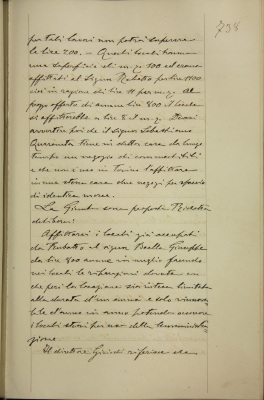 738
per tali lavori non potrà superare
le lire 200. - Questi locali hanno
una superficie di m.q. 100 ed erano
affittati al Signor Rubatto per lire 1100
cioè in ragione di lire 11 per m.q. Al
prezzo offerto di annue lire 800 il locale
si affitterebbe a lire 8 il m.q. Devesi
avvertire poi che il signor Sebastiano
Quaranta tiene in detta casa da lungo
tempo un negozio di commestibili
e che non è uso in Torino l'affittare
in una stessa casa due negozi per
di identica merce.
La Giunta come proposta
delibera:
Affittarsi i locali già occupati
da Rubatto al signor Giuseppe
da lire 800 annue in meglio facendo
nei locali le riparazioni dovute con
che però la locazione sia intesa limitata
alla durata d'un anno e solo rinnova-
bile d'anno in anno potendo occorrere
i locali stessi per uso della Amministra-
zione.
Il direttore riferisce che